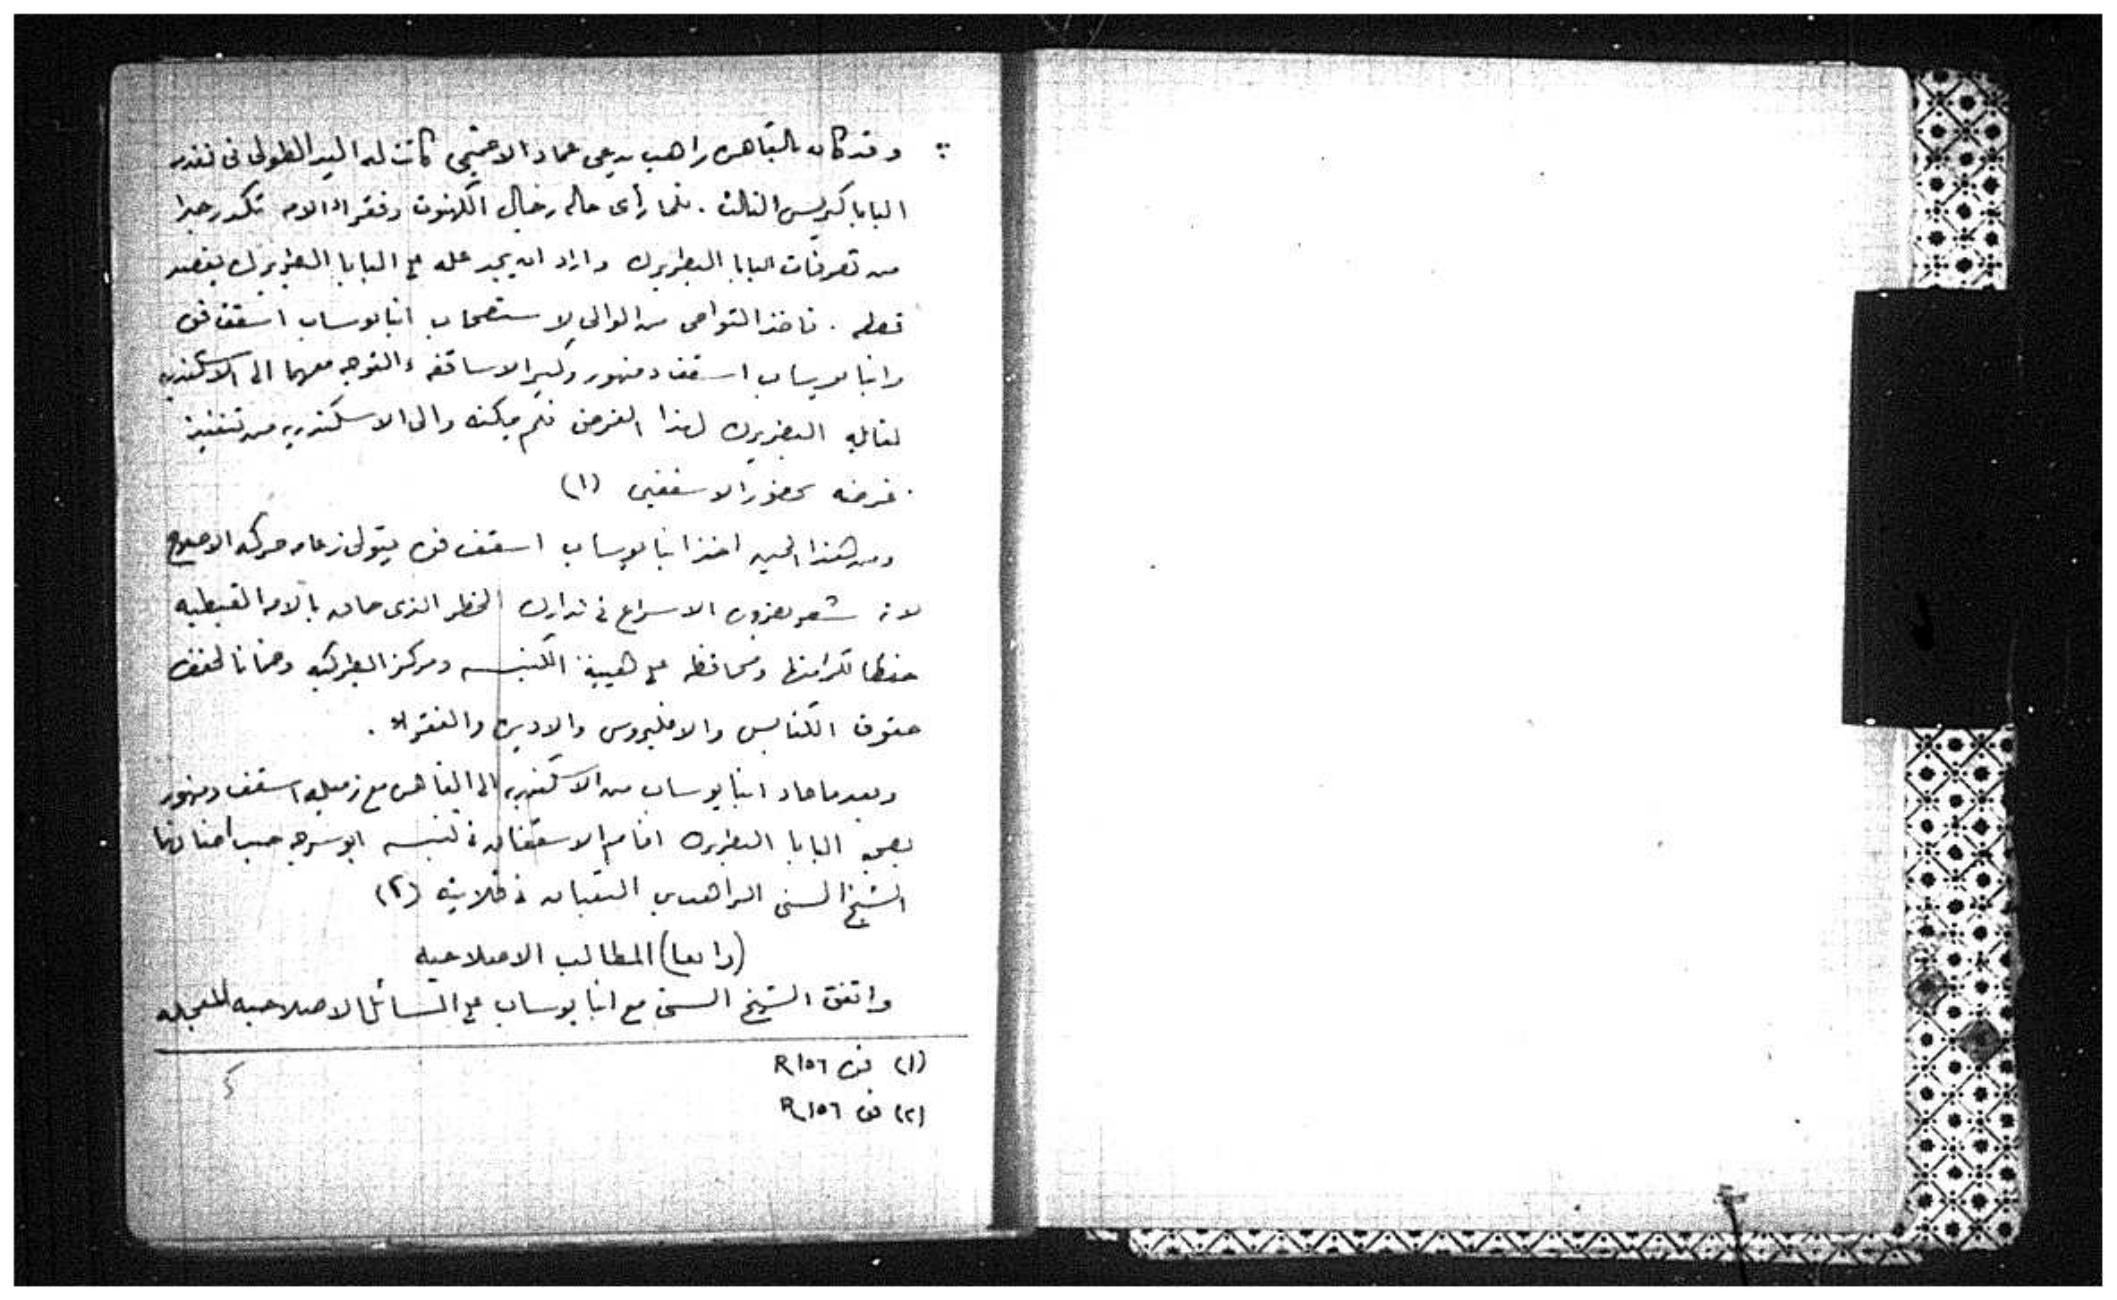 وقد كان بالقاهره راهب يدعى عماد الاخميمى كانت له اليد الطولى فى تقدمه
البابا كيرلس الثالث . فلما رأى حاله رجال الكهنوت وفقراء الامه تكدر جدا
من تصرفات البابا البطريرك واراد ان يجد عله على البابا البطريرك بقصد
قطعه . فاخذ التواصى من الوالى لاستصحاب انبا يوساب اسقف فوه
وانبا يوساب اسقف دمنهور وكبير الاساقفه والتوجه معهما الى الاسكندريه
لمقابله البطريرك لهذا الغرض فلم يمكنه والى الاسكندريه من تنفيذ
غرضه بحضور الاسقفين (١)
ومن هذا الحين اخذ انبا يوساب اسقف فوه يتولى زعامه حركه الاصلاح
لانه شعر بضروره الاسراع فى تدارك الخطر الذى حاق بالامه القبطيه
حفظا لكرامتها ومحافظه على هيبة الكنيسه ومركز البطركيه وضمانا لحفظ
حقوق الكنايس والاكليروس والاديره والفقراء .
وبعد ما عاد انبا يوساب من الاسكندريه الى القاهره مع زميله اسقف دمنهور
بصحبه البابا البطريرك اقام الاسقفان فى كنيسه ابو سرجه حيث اضافهما
الشيخ السنى الراهب الثعبان فى قلايته (٢)
(رابعا) المطالب الاصلاحيه
واتفق الشيخ السنى مع انبا يوساب على المسائل الاصلاحيه المعجله
(١) فوه R ١٥٦
(٢) فوه R ١٥٦